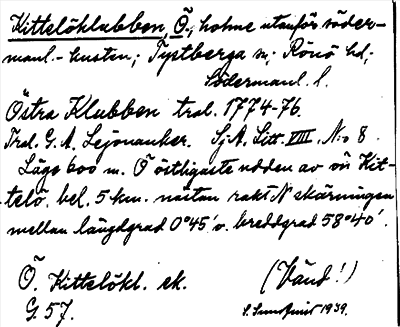 Kittelöklubben, Ö., holme utanför söder-
manl.-kusten; Tystberga sn; Rönö hd;
Södermanl. l.
Östra Klubben tral. 1774-76.
Tral. G. A. Lejonanker. SjA. Litt. VIII. No 8.
Läge 600 m. Ö östligaste udden av ön Kit-
telö, bel. 5 km. nästan rakt N skärningen
mellan längdgrad 0°45' v. breddgrad 58°40'.
Ö. Kittelökl. ek.
(Vänd!)
G 57.
S. Sundquist 1939.